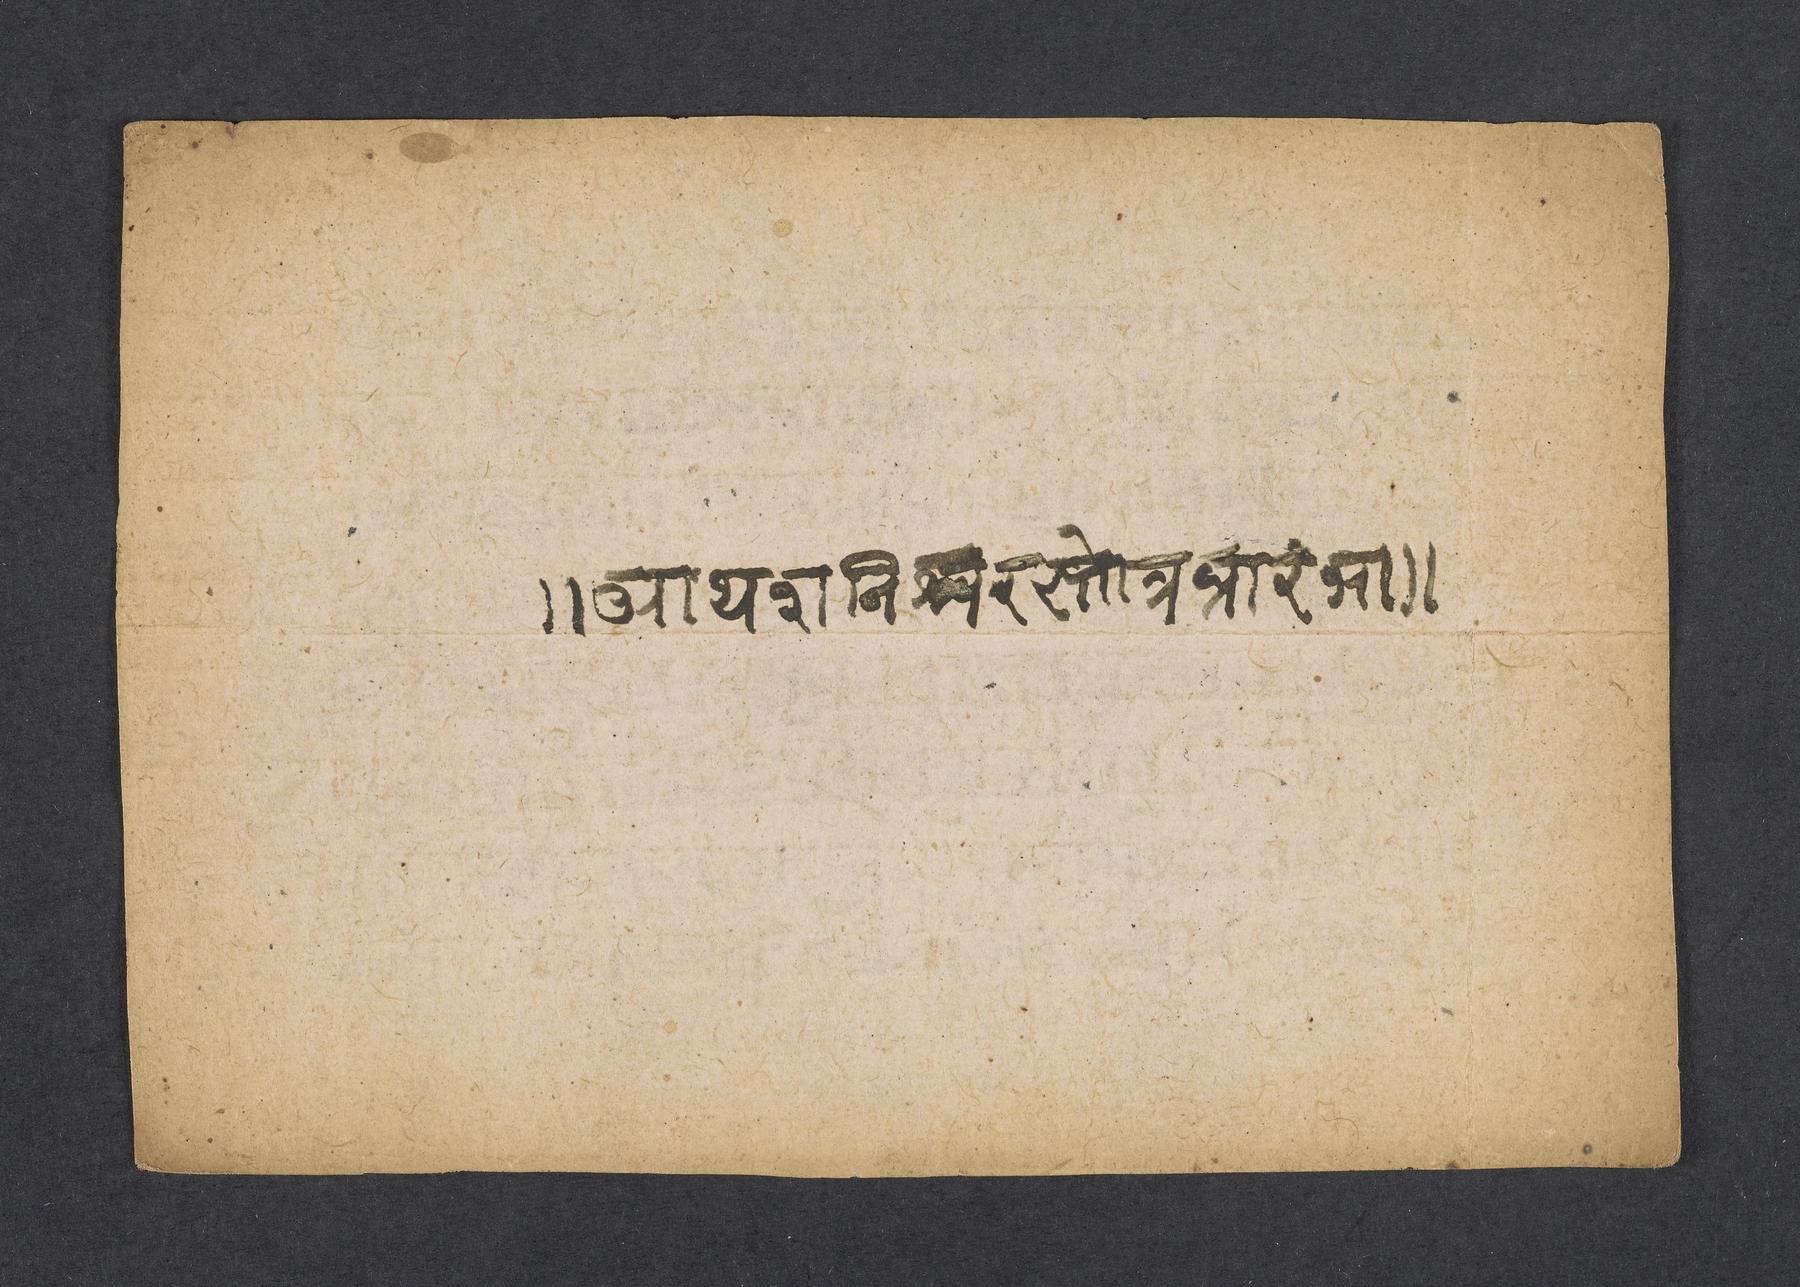 ॥आथशनिश्चरस्तोत्रप्रारंभा॥